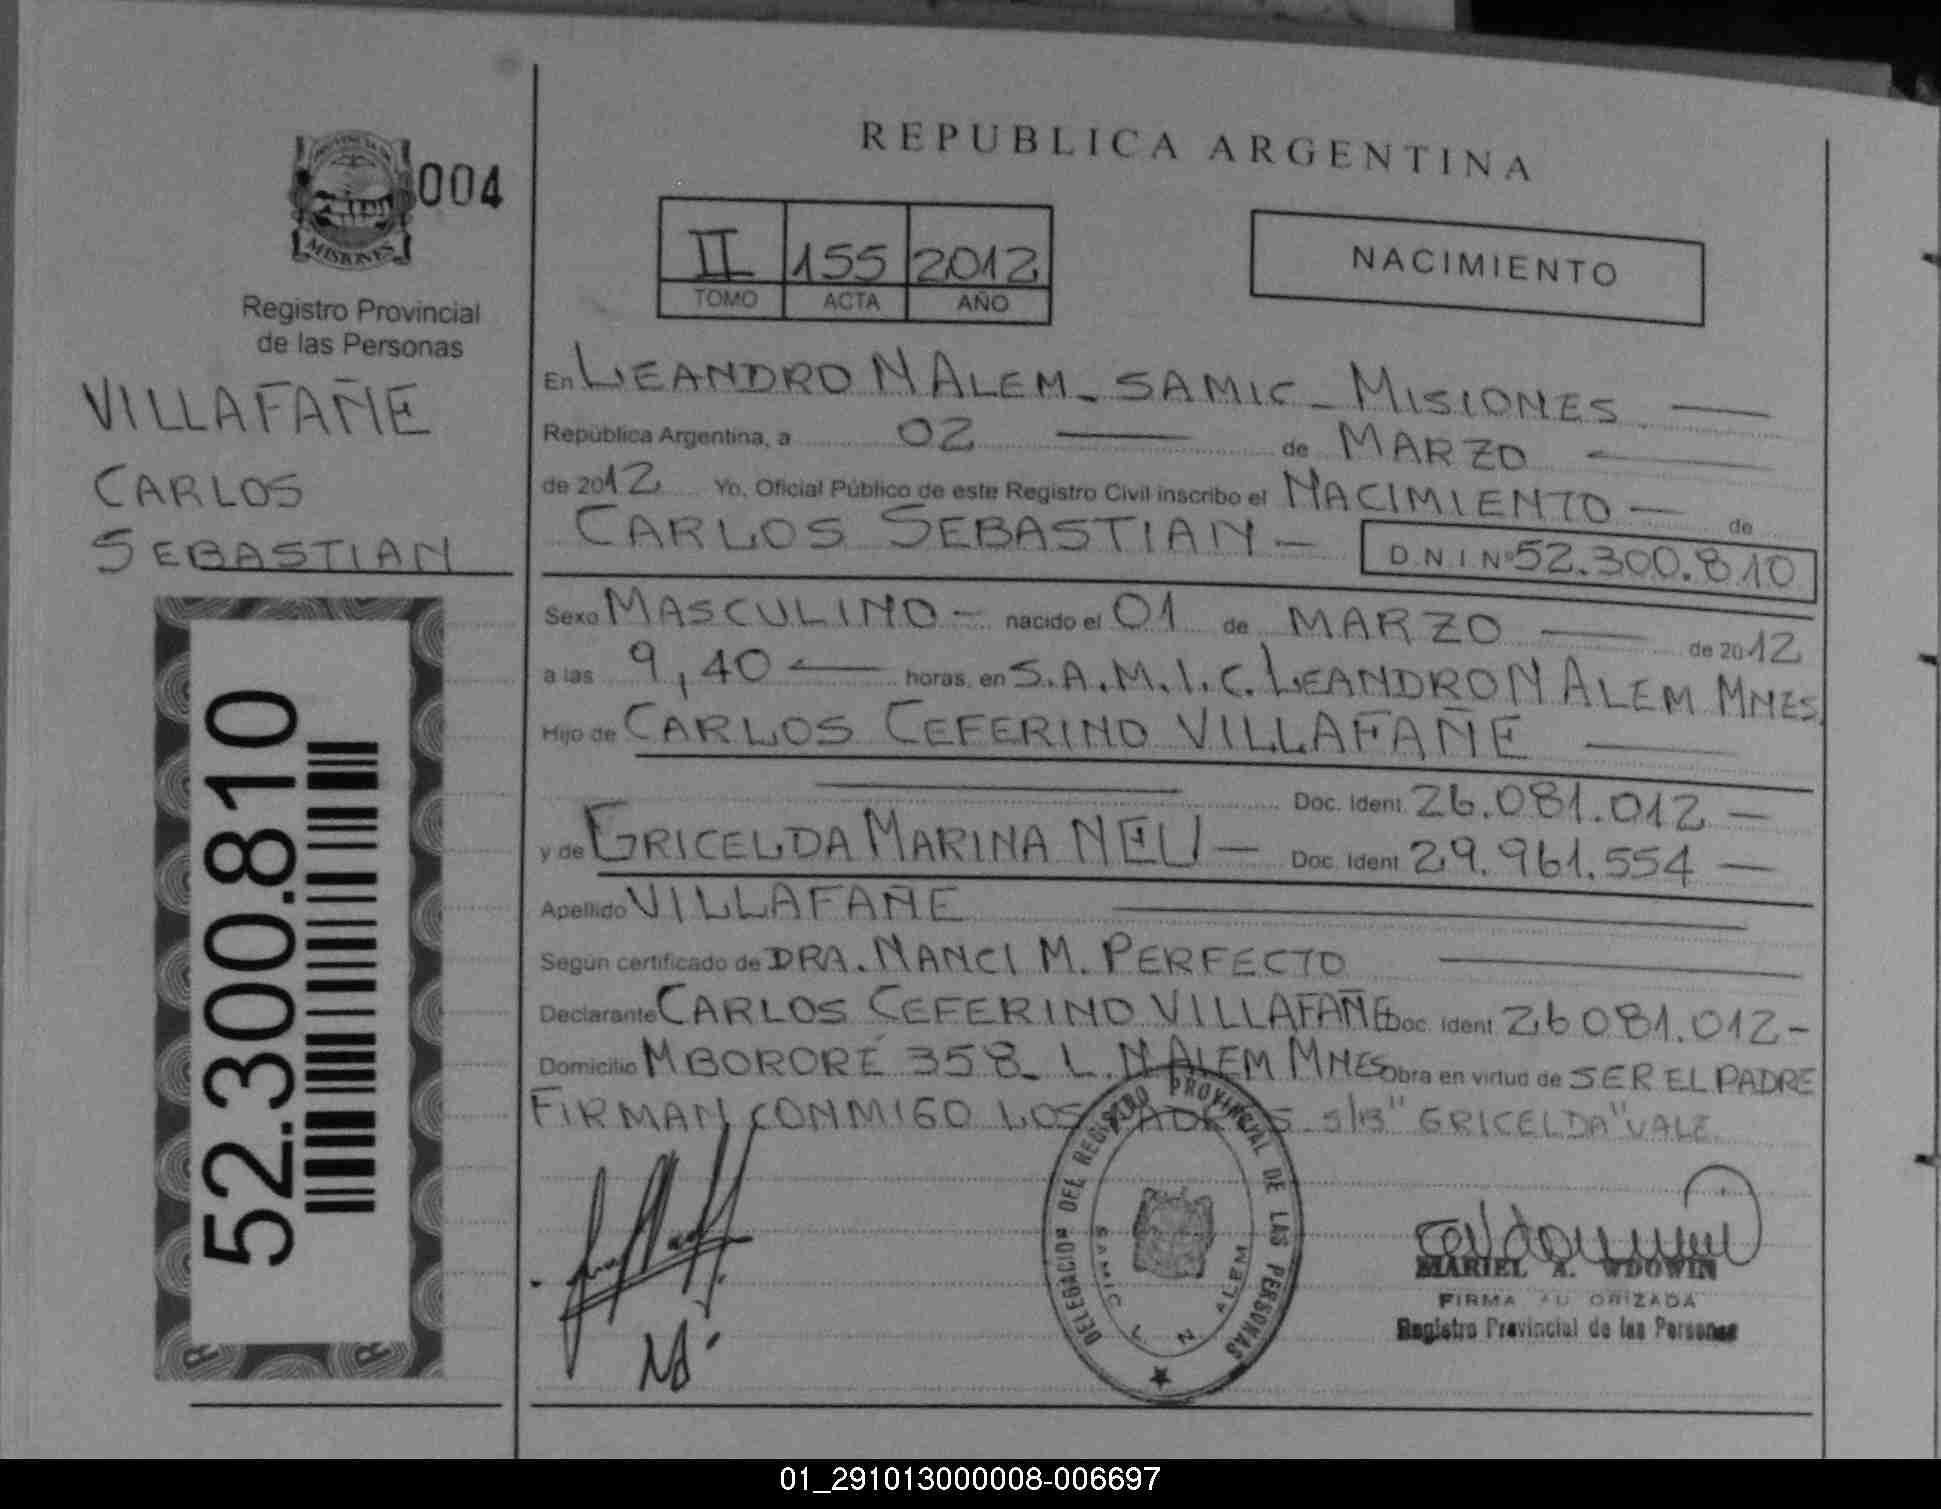 REPUBLICA ARGENTINA
PROVINCIA DE
MISIONES
004
Registro Provincial
de las Personas
VILLAFAÑE
CARLOS
SEBASTIAN
52.300.810
II 155 2012
TOMO ACTA AÑO
NACIMIENTO
En LEANDRO N ALEM - SAMIC - MISIONES
República Argentina, a 02 de MARZO
de 2012 Yo, Oficial Público de este Registro Civil inscribo el NACIMIENTO de
CARLOS SEBASTIAN - D.N.I Nº 52.300.810
Sexo MASCULINO - nacido el 01 de MARZO de 2012
a las 9,40 horas, en S.A.M.I.C. LEANDRO N ALEM MNES.
Hijo de CARLOS CEFERINO VILLAFAÑE
Doc. Ident. 26.081.012 -
y de GRICELDA MARINA NEU - Doc. Ident 29.961.554 -
Apellido VILLAFAÑE
Según certificado de DRA. NANCI M. PERFECTO
Declarante CARLOS CEFERINO VILLAFAÑE Doc. Ident 26081.012 -
Domicilio MBORORÉ 358 - L. N ALEM MNES Obra en virtud de SER EL PADRE
FIRMAN CONMIGO LOS PADRES S/B "GRICELDA" VALE
DELEGACION DEL REGISTRO PROVINCIAL DE LAS PERSONAS
SAMIC L N ALEM
MARIEL A. WDOWIN
FIRMA AUTORIZADA
Registro Provincial de las Personas
01_291013000008-006697